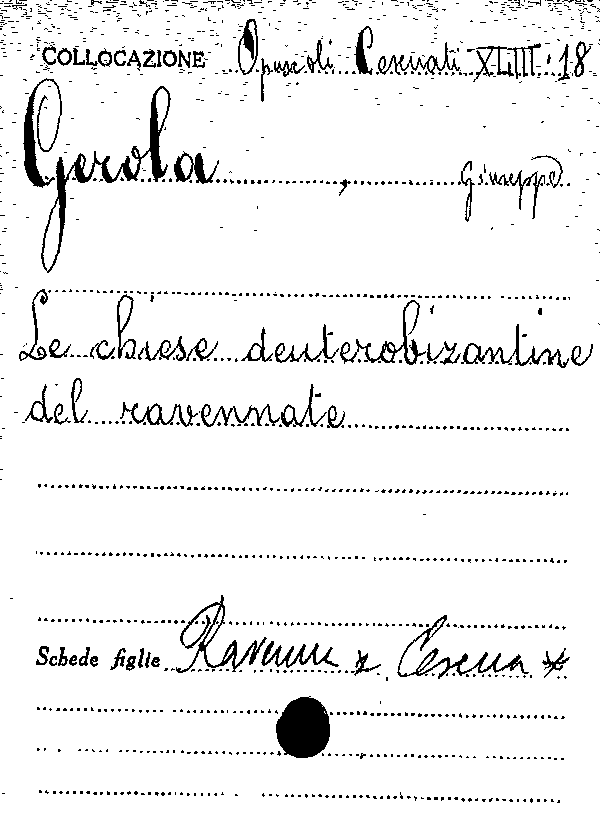 COLLOCAZIONE Opuscoli Cesenati XLIII: 18
Gerola, Giuseppe
Le chiese deuterobizantine
del ravennate
Schede figlie Ravenna x, Cesena *